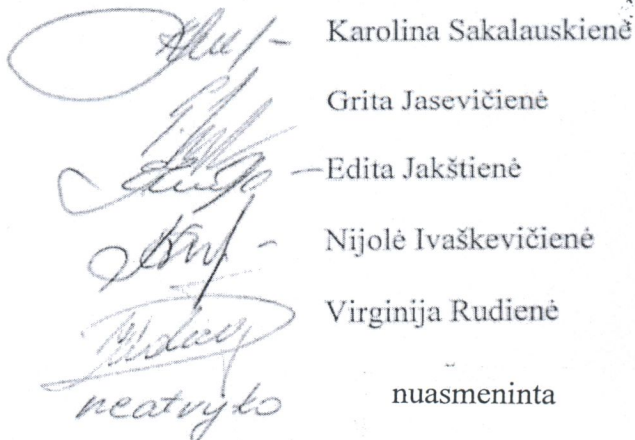 Karolina Sakalauskienė
Grita Jasevičienė
Edita Jakštienė
Nijolė Ivaškevičienė
Virginija Rudienė
neatvyko nuasmeninta